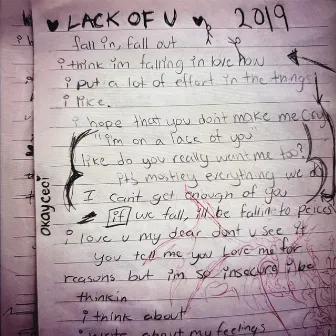 LACK OF U 2019
fall in, fall out
i think im falling in love now
i put a lot of effort in the things
i like.
i hope that you don't make me cry
"im on a lack of you"
like do you really want me too?
its mostley everything we do
I cant get enough of you
if we fall, i'll be fallin to peices
i love u my dear dont u see it
you tell me you love me for
reasons but im so insecure i be
thinkin
i think about
i write about my feelings
okayceoi